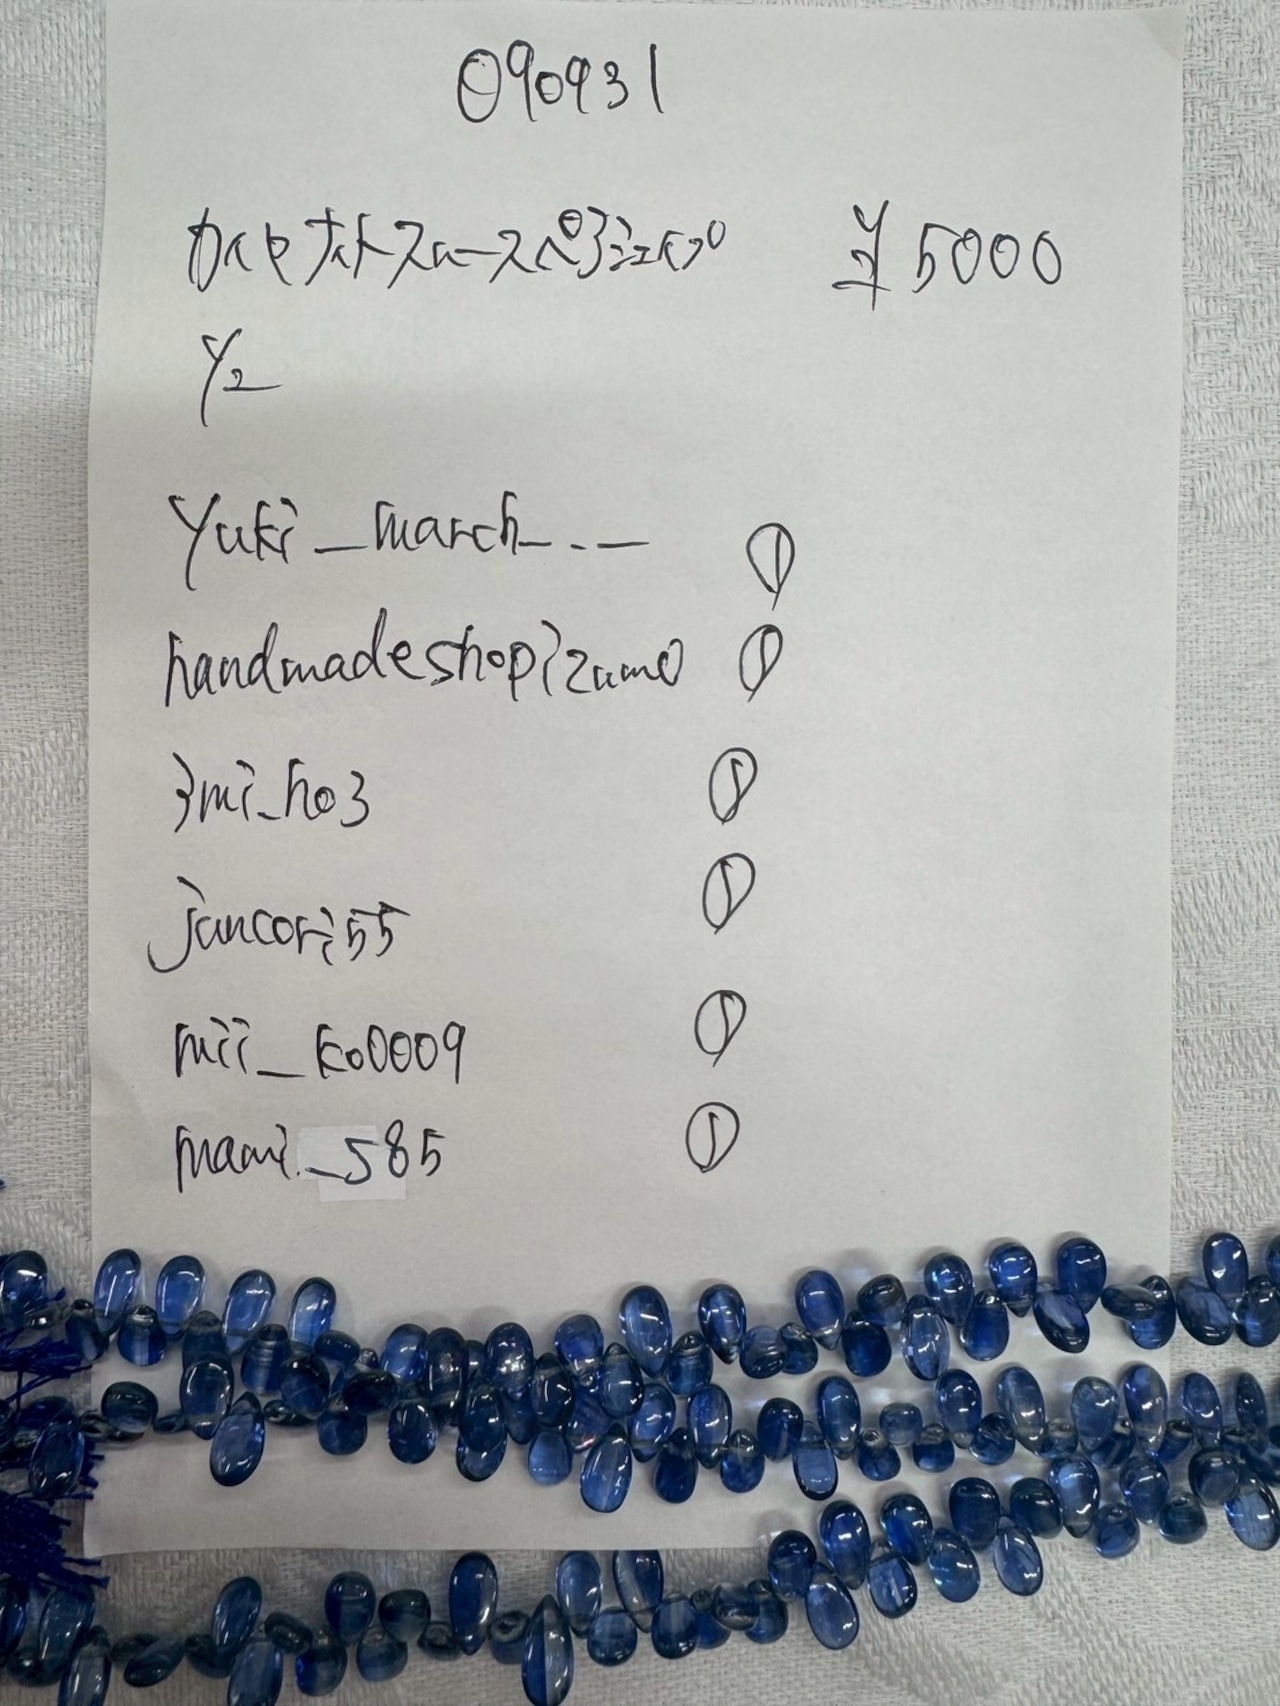 090931
カイヤナイトスムースペアシェイプ ¥5000
Y2
Yuki_march_._ ①
handmadeshopizumo ①
3mi_ho3 ①
juncori55 ①
mii_ko0009 ①
mami_585 ①